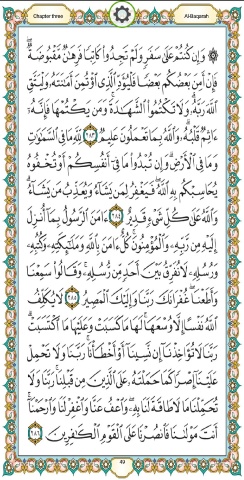 Chapter three Al-Baqarah
۞ وَإِن كُنتُمْ عَلَىٰ سَفَرٍ وَلَمْ تَجِدُوا۟ كَاتِبًا فَرِهَٰنٌ مَّقْبُوضَةٌ ۖ
فَإِنْ أَمِنَ بَعْضُكُم بَعْضًا فَلْيُؤَدِّ ٱلَّذِى ٱؤْتُمِنَ أَمَٰنَتَهُۥ وَلْيَتَّقِ
ٱللَّهَ رَبَّهُۥ ۗ وَلَا تَكْتُمُوا۟ ٱلشَّهَٰدَةَ ۚ وَمَن يَكْتُمْهَا فَإِنَّهُۥٓ
ءَاثِمٌ قَلْبُهُۥ ۗ وَٱللَّهُ بِمَا تَعْمَلُونَ عَلِيمٌ ٢٨٣ لِّلَّهِ مَا فِى ٱلسَّمَٰوَٰتِ
وَمَا فِى ٱلْأَرْضِ ۗ وَإِن تُبْدُوا۟ مَا فِىٓ أَنفُسِكُمْ أَوْ تُخْفُوهُ
يُحَاسِبْكُم بِهِ ٱللَّهُ ۖ فَيَغْفِرُ لِمَن يَشَآءُ وَيُعَذِّبُ مَن يَشَآءُ ۗ
وَٱللَّهُ عَلَىٰ كُلِّ شَىْءٍ قَدِيرٌ ٢٨٤ ءَامَنَ ٱلرَّسُولُ بِمَآ أُنزِلَ
إِلَيْهِ مِن رَّبِّهِۦ وَٱلْمُؤْمِنُونَ ۚ كُلٌّ ءَامَنَ بِٱللَّهِ وَمَلَٰٓئِكَتِهِۦ وَكُتُبِهِۦ
وَرُسُلِهِۦ لَا نُفَرِّقُ بَيْنَ أَحَدٍ مِّن رُّسُلِهِۦ ۚ وَقَالُوا۟ سَمِعْنَا
وَأَطَعْنَا ۖ غُفْرَانَكَ رَبَّنَا وَإِلَيْكَ ٱلْمَصِيرُ ٢٨٥ لَا يُكَلِّفُ
ٱللَّهُ نَفْسًا إِلَّا وُسْعَهَا ۚ لَهَا مَا كَسَبَتْ وَعَلَيْهَا مَا ٱكْتَسَبَتْ ۗ
رَبَّنَا لَا تُؤَاخِذْنَآ إِن نَّسِينَآ أَوْ أَخْطَأْنَا ۚ رَبَّنَا وَلَا تَحْمِلْ
عَلَيْنَآ إِصْرًا كَمَا حَمَلْتَهُۥ عَلَى ٱلَّذِينَ مِن قَبْلِنَا ۚ رَبَّنَا وَلَا
تُحَمِّلْنَا مَا لَا طَاقَةَ لَنَا بِهِۦ ۖ وَٱعْفُ عَنَّا وَٱغْفِرْ لَنَا وَٱرْحَمْنَآ ۚ
أَنتَ مَوْلَىٰنَا فَٱنصُرْنَا عَلَى ٱلْقَوْمِ ٱلْكَٰفِرِينَ ٢٨٦
49